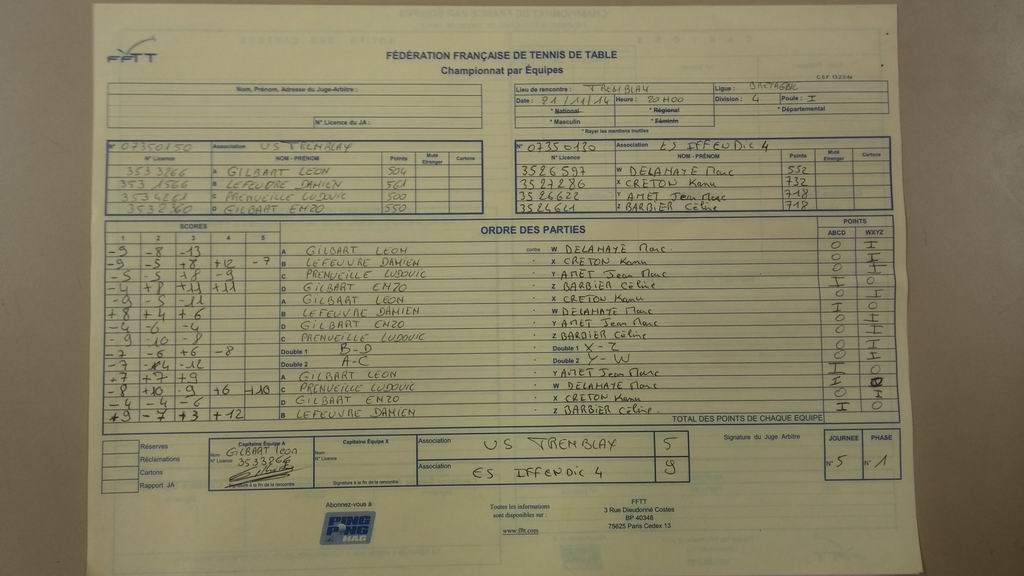 FFTT
FÉDÉRATION FRANÇAISE DE TENNIS DE TABLE
Championnat par Équipes
C.S.F. 13.2.0.4a
Nom, Prénom, Adresse du Juge-Arbitre :
N° Licence du JA :
Lieu de rencontre : TREMBLAY Ligue : BRETAGNE
Date : 21/11/14 Heure : 20H00 Division : 4 Poule : I
* National * Régional * Départemental
* Masculin * Féminin
* Rayer les mentions inutiles
N° 07350150 Association US TREMBLAY
N° Licence NOM - PRÉNOM Points Muté Etranger Cartons
3533266 A GILBART LEON 504
353 1566 B LEFEUVRE DAMIEN 561
3534261 C PRENVEILLE LUDOVIC 500
3532360 D GILBART ENZO 550
N° 07350130 Association ES IFFENDIC 4
N° Licence NOM - PRÉNOM Points Muté Etranger Cartons
3526597 W DELAHAYE Marc 552
3527286 X CRETON Kanu 732
3526622 Y AMET Jean Marc 718
3524621 Z BARBIER Céline 718
SCORES ORDRE DES PARTIES POINTS
1 2 3 4 5 ABCD WXYZ
-9 -8 -13 A GILBART LEON contre W DELAHAYE Marc O I
-9 -5 +8 +12 -7 B LEFEUVRE DAMIEN " X CRETON Kanu O I
-5 -5 +8 -9 C PRENVEILLE LUDOVIC " Y AMET Jean Marc O I
-4 +8 +11 +11 D GILBART ENZO " Z BARBIER Céline I O
-9 -5 -11 A GILBART LEON " X CRETON Kanu O I
+8 +4 +6 B LEFEUVRE DAMIEN " W DELAHAYE Marc I O
-4 -6 -4 D GILBART ENZO " Y AMET Jean Marc O I
-9 -10 -8 C PRENVEILLE LUDOVIC " Z BARBIER Céline O I
-7 -6 +6 -8 Double 1 B-D " Double 1 X-Z O I
-7 -4 -12 Double 2 A-C " Double 2 Y-W O I
+7 +7 +9 A GILBART LEON " Y AMET Jean Marc I O
-8 +10 -9 +6 +10 C PRENVEILLE LUDOVIC " W DELAHAYE Marc I O
-4 -4 -6 D GILBART ENZO " X CRETON Kanu O I
+9 -7 +3 +12 B LEFEUVRE DAMIEN " Z BARBIER Céline I O
TOTAL DES POINTS DE CHAQUE EQUIPE
Réserves
Réclamations
Cartons
Rapport JA
Capitaine Équipe A
Nom GILBART Léon
N° Licence 3533266
Signature à la fin de la rencontre
Capitaine Équipe X
Nom
N° Licence
Signature à la fin de la rencontre
Association US TREMBLAY 5
Association ES IFFENDIC 4 9
Signature du Juge Arbitre
JOURNEE PHASE
N° 5 N° 1
Abonnez-vous à
PING PONG MAG
Toutes les informations
sont disponibles sur :
www.fftt.com
FFTT
3 Rue Dieudonné Costes
BP 40348
75625 Paris Cedex 13